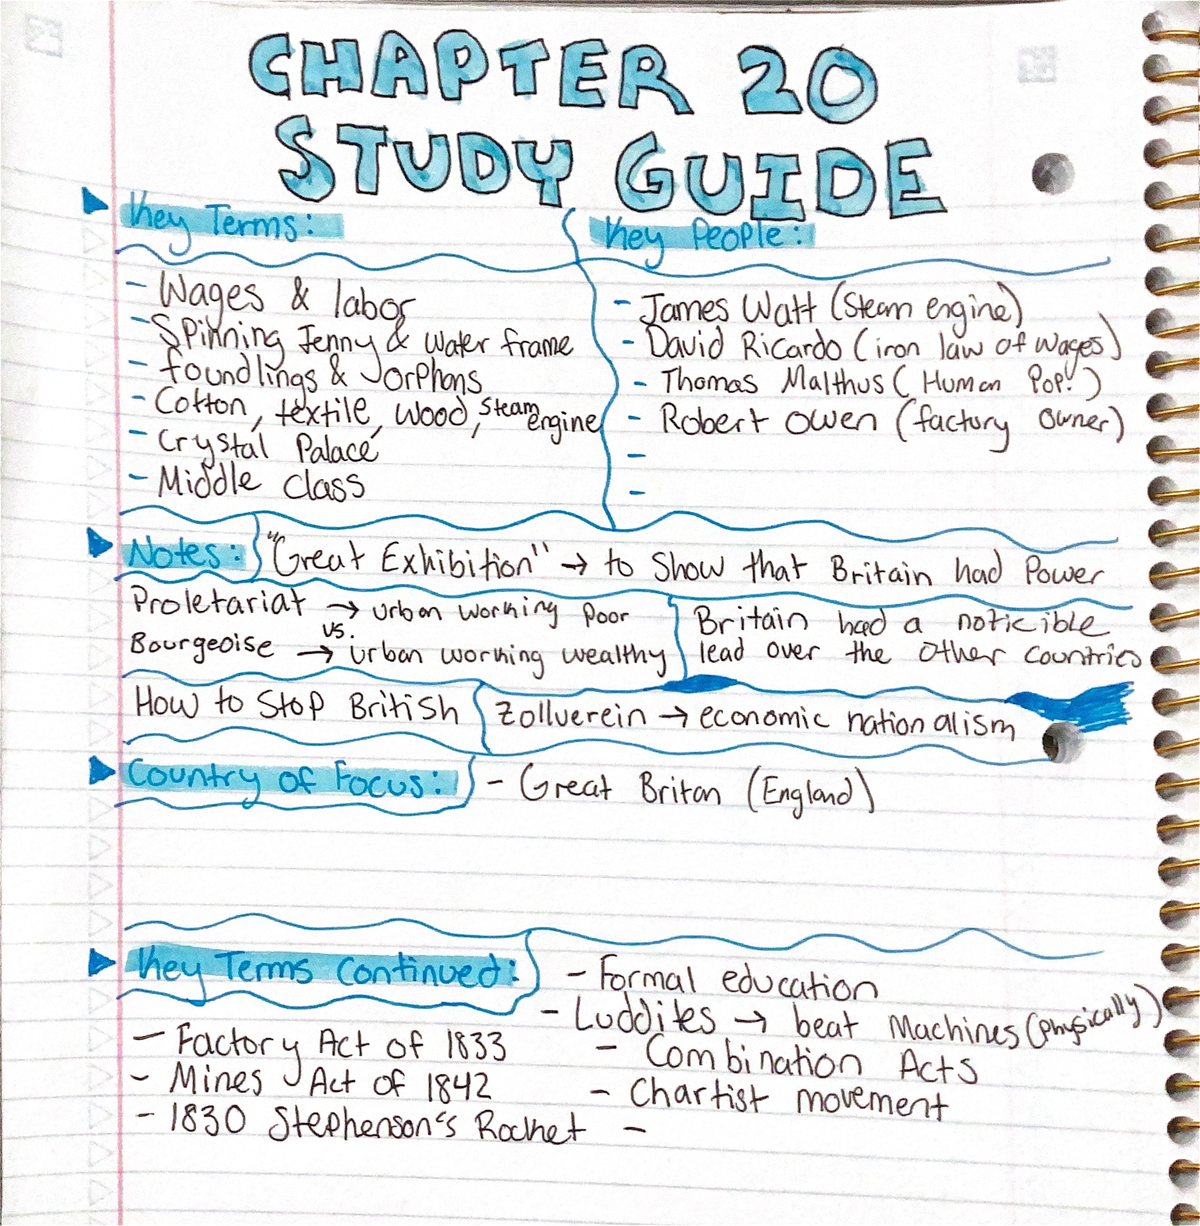 CHAPTER 20
STUDY GUIDE
Key Terms:
- Wages & labor
- Spinning Jenny & Water frame
- foundlings & orphans
- Cotton, textile, wood, Steam engine
- Crystal Palace
- Middle Class
Key People:
- James Watt (Steam engine)
- David Ricardo (iron law of wages)
- Thomas Malthus (Human Pop.)
- Robert Owen (factory owner)
-
-
Notes:
"Great Exhibition" → to Show that Britain had Power
Proletariat → urban working poor
vs.
Bourgeoise → urban working wealthy
Britain had a noticible
lead over the other countries
How to Stop British
Zollverein → economic nationalism
Country of Focus:
- Great Britan (England)
Key Terms Continued:
- Factory Act of 1833
- Mines Act of 1842
- 1830 Stephenson's Rocket
- Formal education
- Luddites → beat Machines (physically)
- Combination Acts
- Chartist movement
-